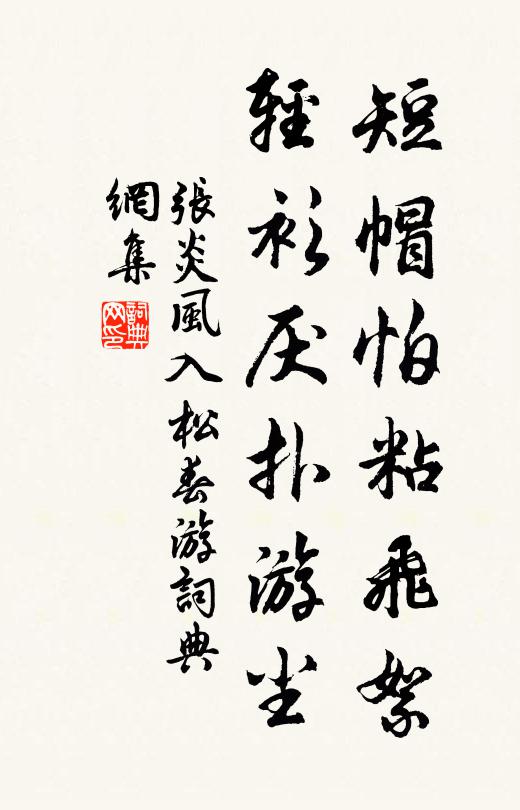 短帽怕粘飛絮
輕衫厌扑游尘
張炎風入松春游詞典
網集
詞典
网印